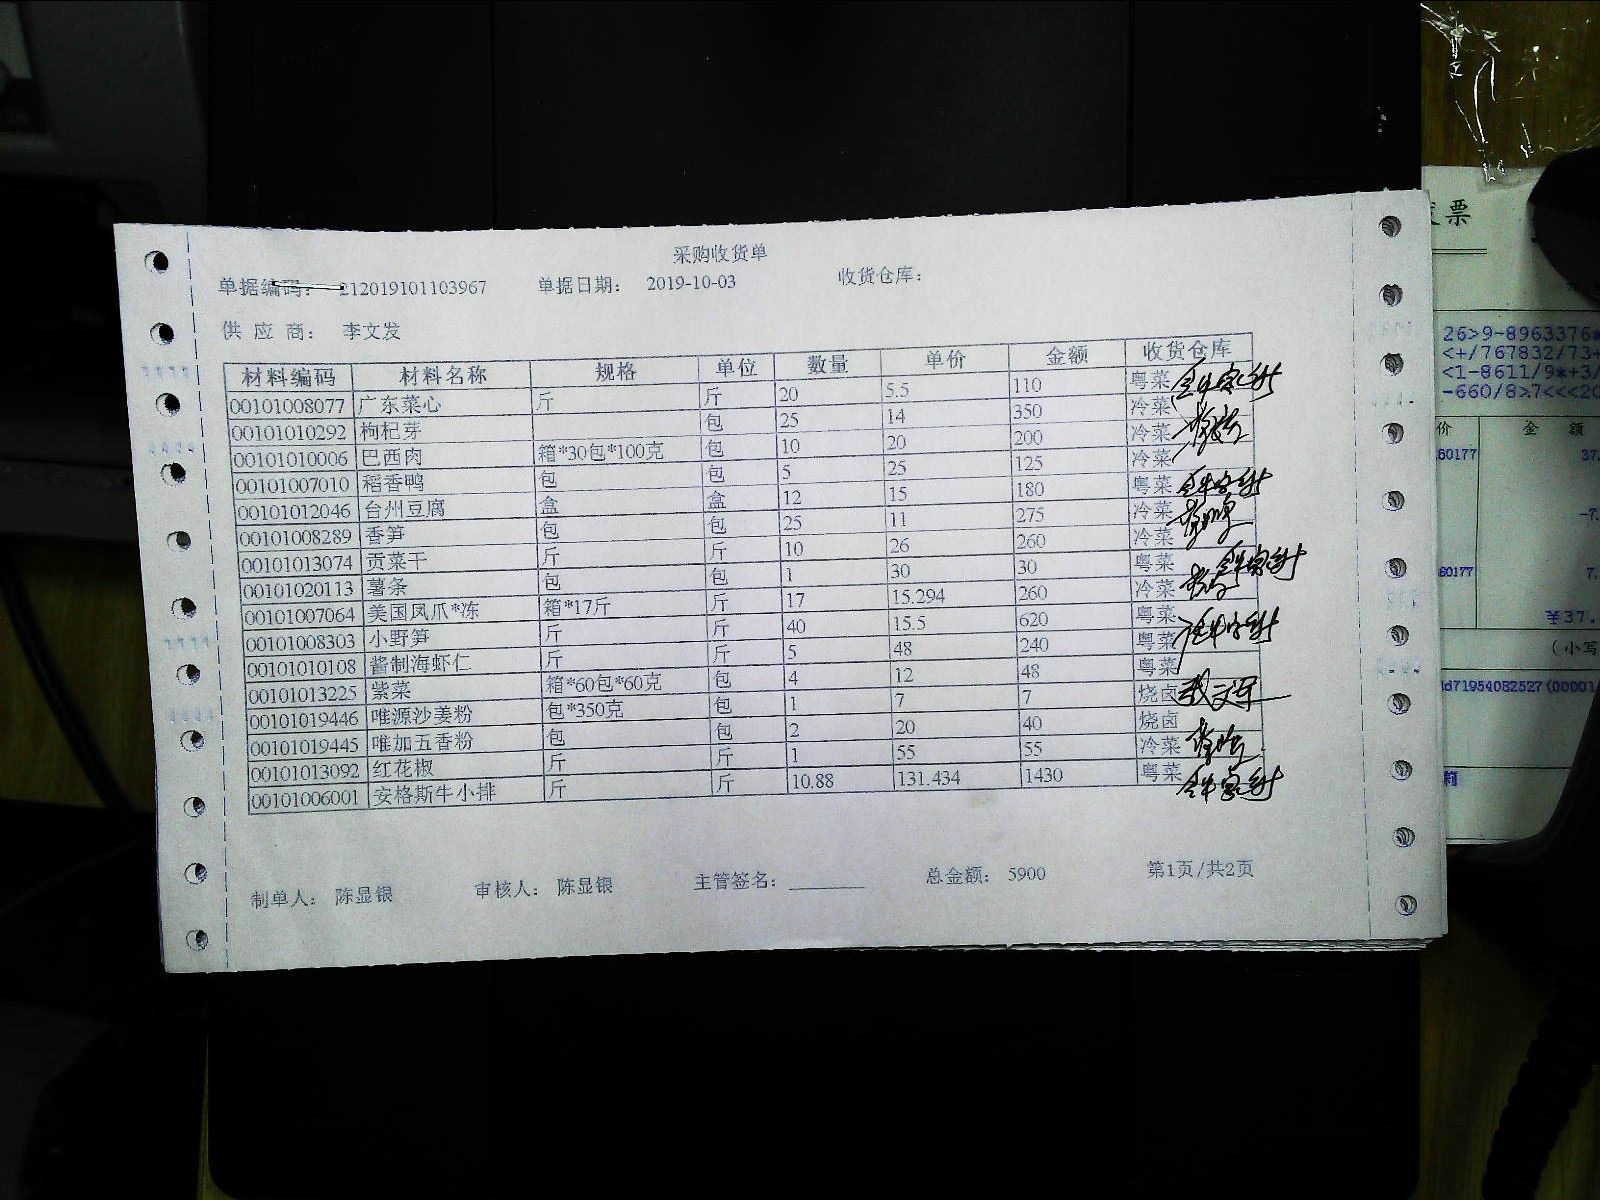 采购收货单
单据编码： 212019101103967 单据日期： 2019-10-03 收货仓库：
供 应 商： 李文发
材料编码 材料名称 规格 单位 数量 单价 金额 收货仓库
00101008077 广东菜心 斤 斤 20 5.5 110 粤菜
00101010292 枸杞芽 包 25 14 350 冷菜
00101010006 巴西肉 箱*30包*100克 包 10 20 200 冷菜
00101007010 稻香鸭 包 包 5 25 125 冷菜
00101012046 台州豆腐 盒 盒 12 15 180 粤菜
00101008289 香笋 包 包 25 11 275 冷菜
00101013074 贡菜干 斤 斤 10 26 260 冷菜
00101020113 薯条 包 包 1 30 30 粤菜
00101007064 美国凤爪*冻 箱*17斤 斤 17 15.294 260 冷菜
00101008303 小野笋 斤 斤 40 15.5 620 粤菜
00101010108 酱制海虾仁 斤 斤 5 48 240 粤菜
00101013225 紫菜 箱*60包*60克 包 4 12 48 粤菜
00101019446 唯源沙姜粉 包*350克 包 1 7 7 烧卤
00101019445 唯加五香粉 包 包 2 20 40 烧卤
00101013092 红花椒 斤 斤 1 55 55 冷菜
00101006001 安格斯牛小排 斤 斤 10.88 131.434 1430 粤菜
制单人： 陈显银 审核人： 陈显银 主管签名： 总金额： 5900 第1页/共2页
票
26>9-8963376*
<+/767832/73+
<1-8611/9*+3/
-660/8>7<<<20
价 金 额
60177 37.
-7.
60177 7.
¥37.
(小写
d71954082527(00001/
莉